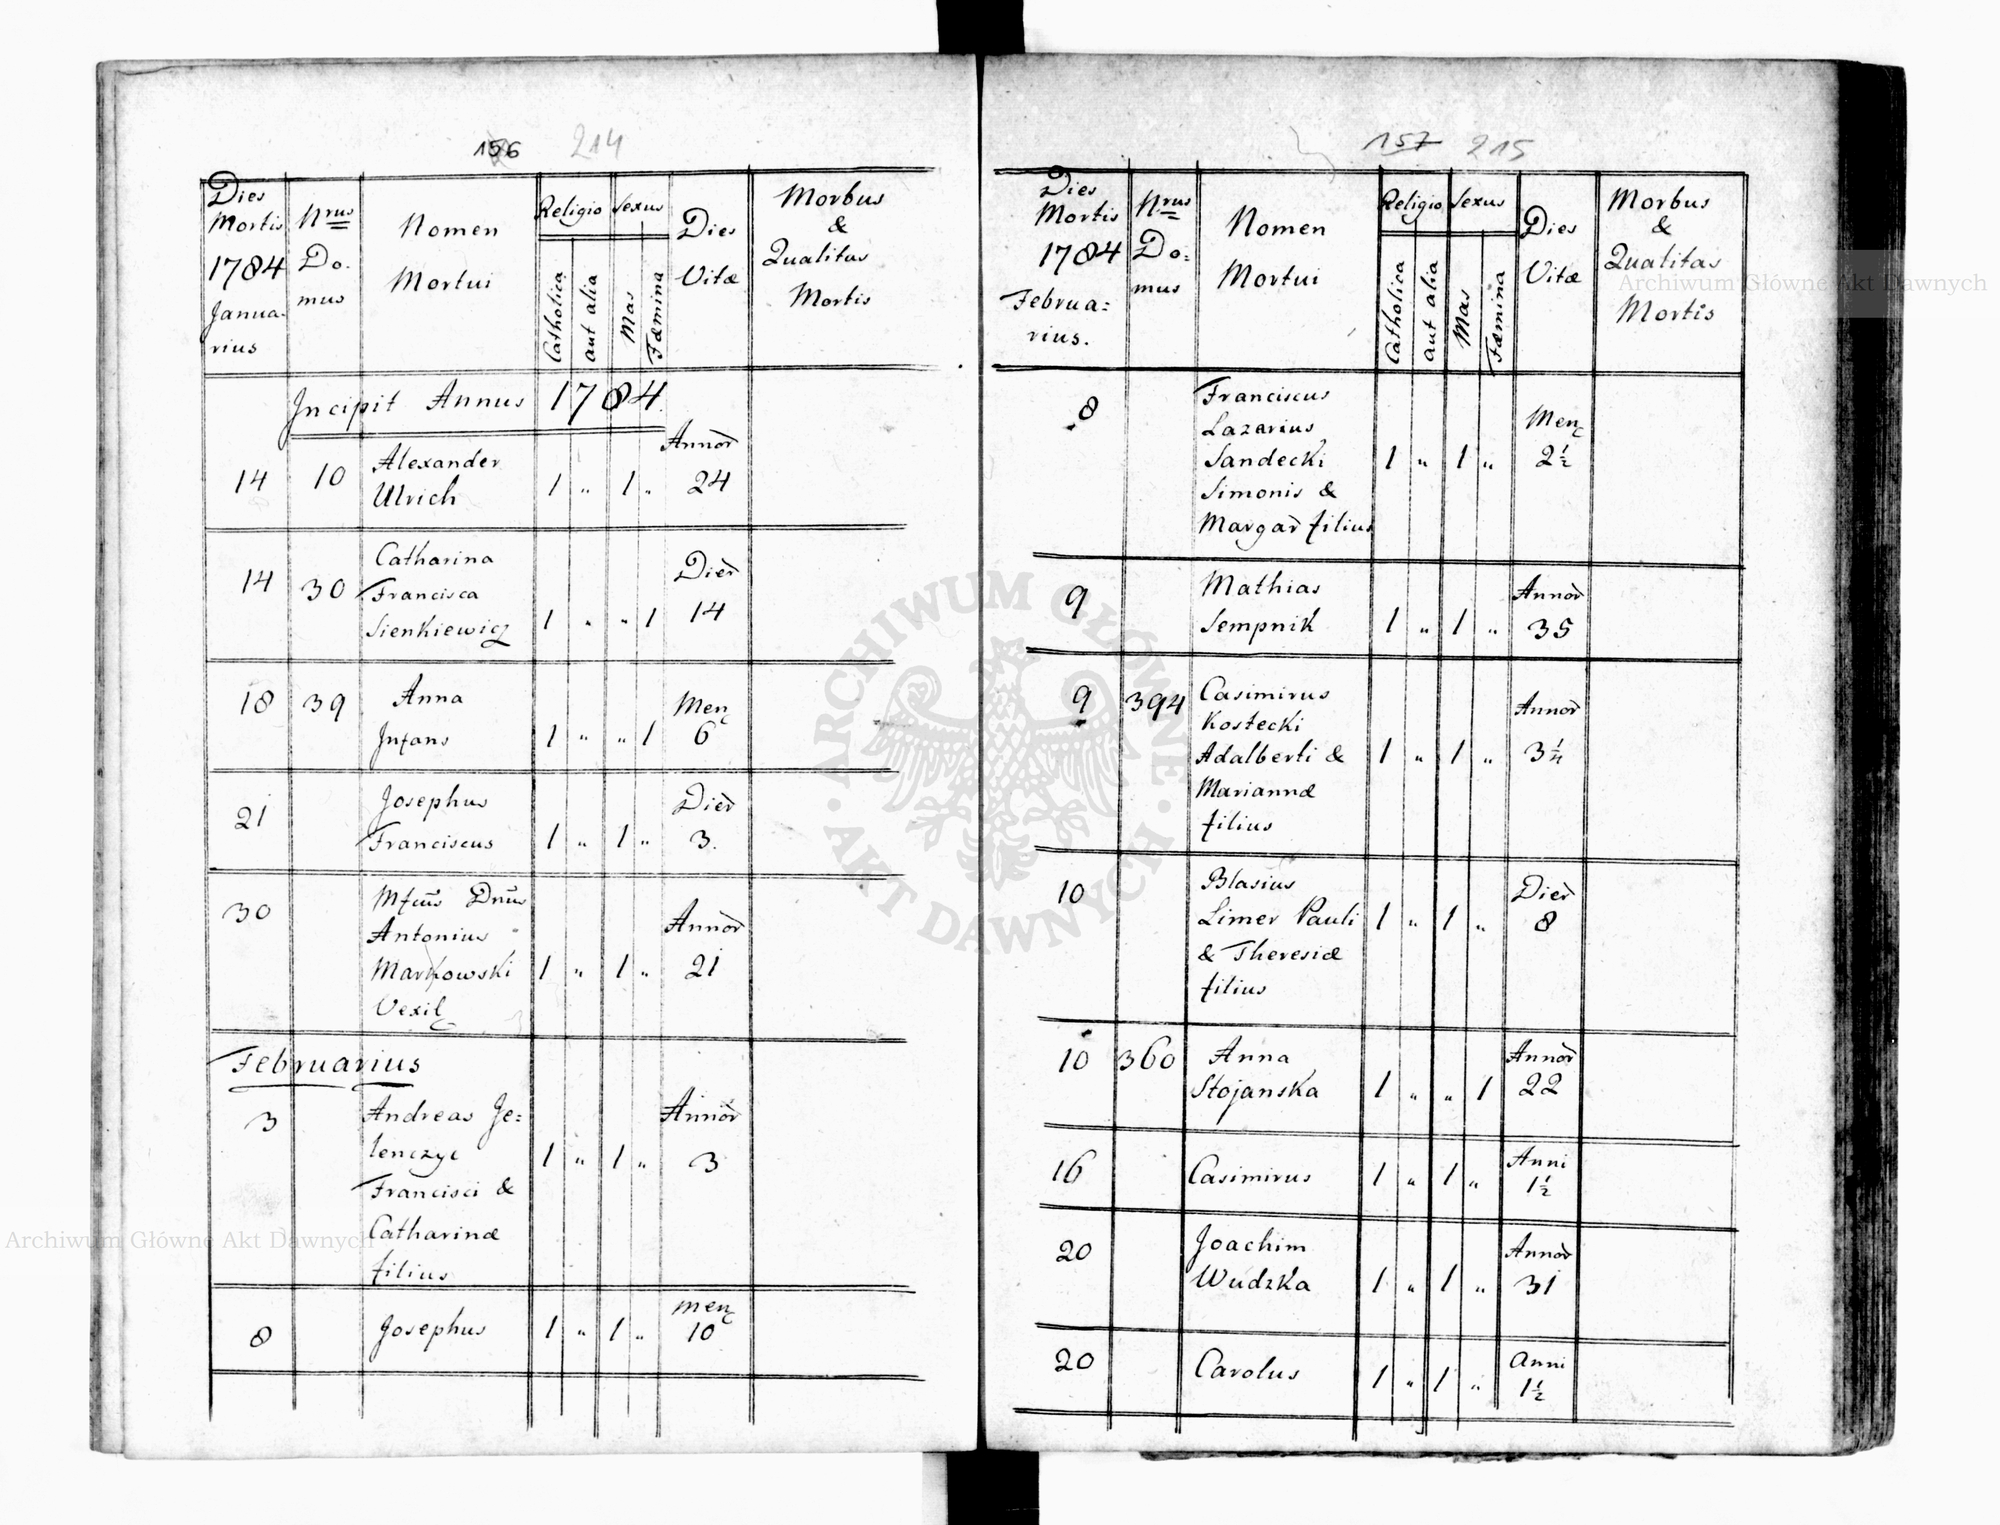 156 214
Dies
Mortis
1784
Janua-
rius
Nrus
Do-
mus
Nomen
Mortui
Religio
Catholica
aut alia
Sexus
Mas
Fæmina
Dies
Vitæ
Morbus
&
Qualitas
Mortis
Incipit Annus 1784.
14 10 Alexander
Ulrich 1 " 1 " Annor̃ 24
14 30 Catharina
Francisca
Sienkiewicz 1 " " 1 Dier̃ 14
18 39 Anna
Infans 1 " " 1 Men 6
21 Josephus
Franciscus 1 " 1 " Dier̃ 3.
30 Mfcus Dnus
Antonius
Markowski 1 " 1 " Annor̃ 21
Vexil
Februarius
3 Andreas Je=
lenczyc 1 " 1 " Annor̃ 3
Francisci &
Catharinæ
filius
8 Josephus 1 " 1 " Men 10
157 215
Dies
Mortis
1784
Februa=
rius.
Nrus
Do=
mus
Nomen
Mortui
Religio
Catholica
aut alia
Sexus
Mas
Fæmina
Dies
Vitæ
Morbus
&
Qualitas
Mortis
8 Franciscus
Lazarius
Sandecki 1 " 1 " Men 2½
Simonis &
Margar̃ filius
9 Mathias
Sempnik 1 " 1 " Annor̃ 35
9 394 Casimirus
Kostecki
Adalberti & 1 " 1 " Annor̃ 3¼
Mariannæ
filius
10 Blasius
Limer Pauli 1 " 1 " Dier̃ 8
& Theresiæ
filius
10 360 Anna
Stojanska 1 " " 1 Annor̃ 22
16 Casimirus 1 " 1 " Anni 1½
20 Joachim
Wudzka 1 " 1 " Annor̃ 31
20 Carolus 1 " 1 " Anni 1½
ARCHIWUM GŁÓWNE
AKT DAWNYCH
Archiwum Główne Akt Dawnych
Archiwum Główne Akt Dawnych